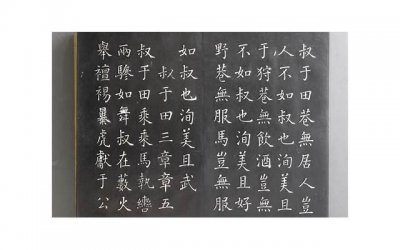 叔于田巷無居人豈
人不如叔也洵美且
于狩巷無飲酒豈無
不如叔也洵美且好
野巷無服馬豈無服
如叔也洵美且武
叔于田三章章五
叔于田乘乘馬執轡
兩驂如舞叔在藪火
舉襢裼暴虎獻于公